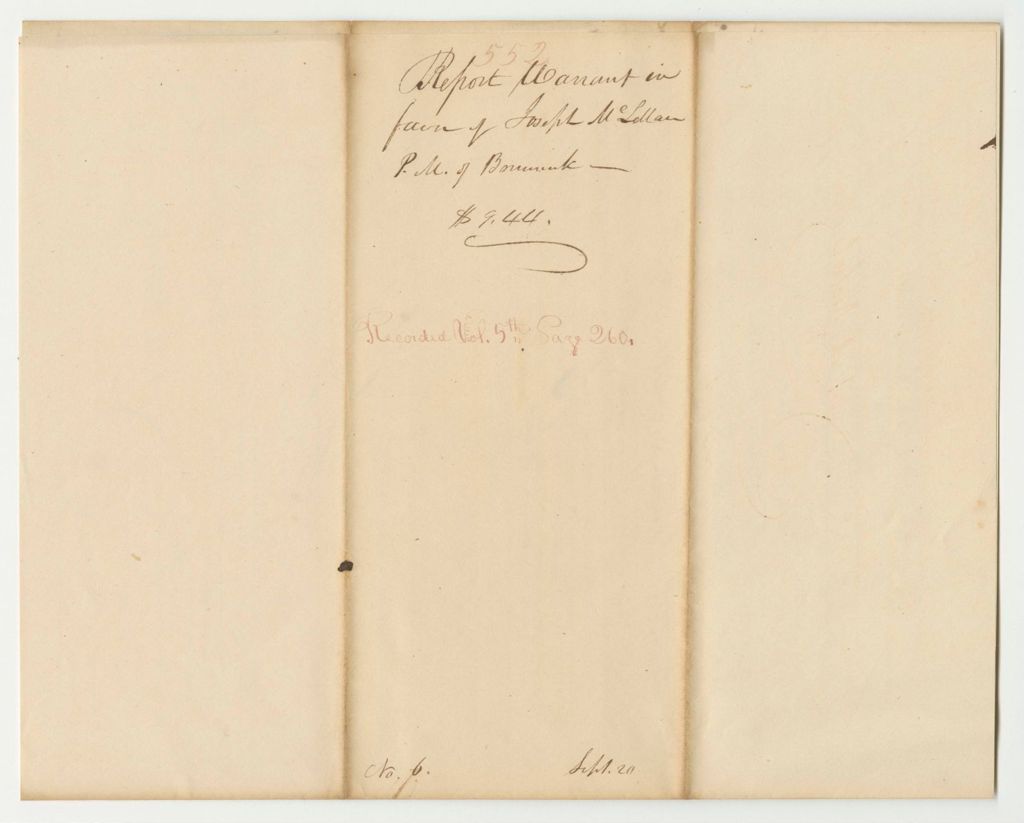 552
Report Warrant in
favor of Joseph McLellan
P. M. of Brunswick —
$9.44.
Recorded Vol. 5th Page 260.
No. 6. Sept. 20